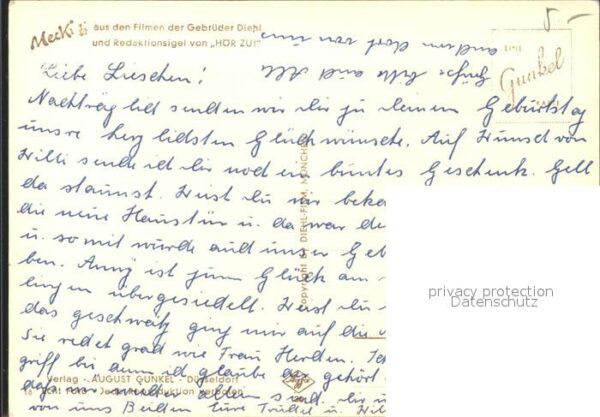 Mecki
aus den Filmen der Gebrüder Diehl
und Redaktionsigel von „HÖR ZU!"
5.-
Gunkel
andern dort von uns
Grüße bitte auch alle
Liebe Lieschen!
Nachträglich senden wir dir zu deinem Geburtstag
unsre herzlichsten Glückwünsche. Auf Wunsch von
Willi sende ich dir noch ein buntes Geschenk. Gell
da staunst. Weist du wir beka
die neue Haustür u. da war de
u. somit wurde auch unser Geb
ben. Anny ist zum Glück am
lingen übergesiedelt. Weist du
das geschwätz ging mir auf die
Sie redet grad wie Frau Herden. Ich
griff bei dem ich glaube der gehört
dazu wir allen
von uns Beiden Eure Trudel u. Will
Copyright by DIEHL-FILM, MÜNCHEN
Verlag · AUGUST GUNKEL · Düsseldorf
Agfa
privacy protection
Datenschutz